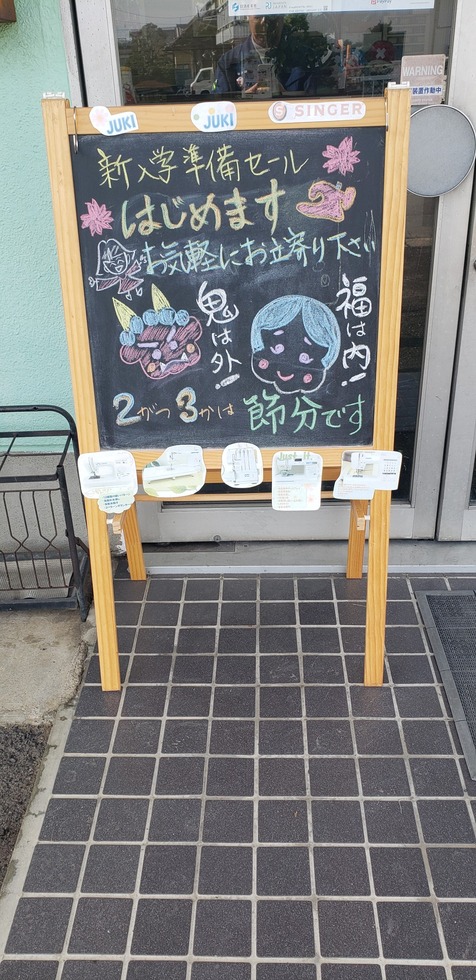 WARNING
装置作動中
JUKI
JUKI
SINGER
新入学準備セール
はじめます
お気軽にお立寄り下さい
鬼は外!
福は内!
2がつ3かは
節分です
Just it.